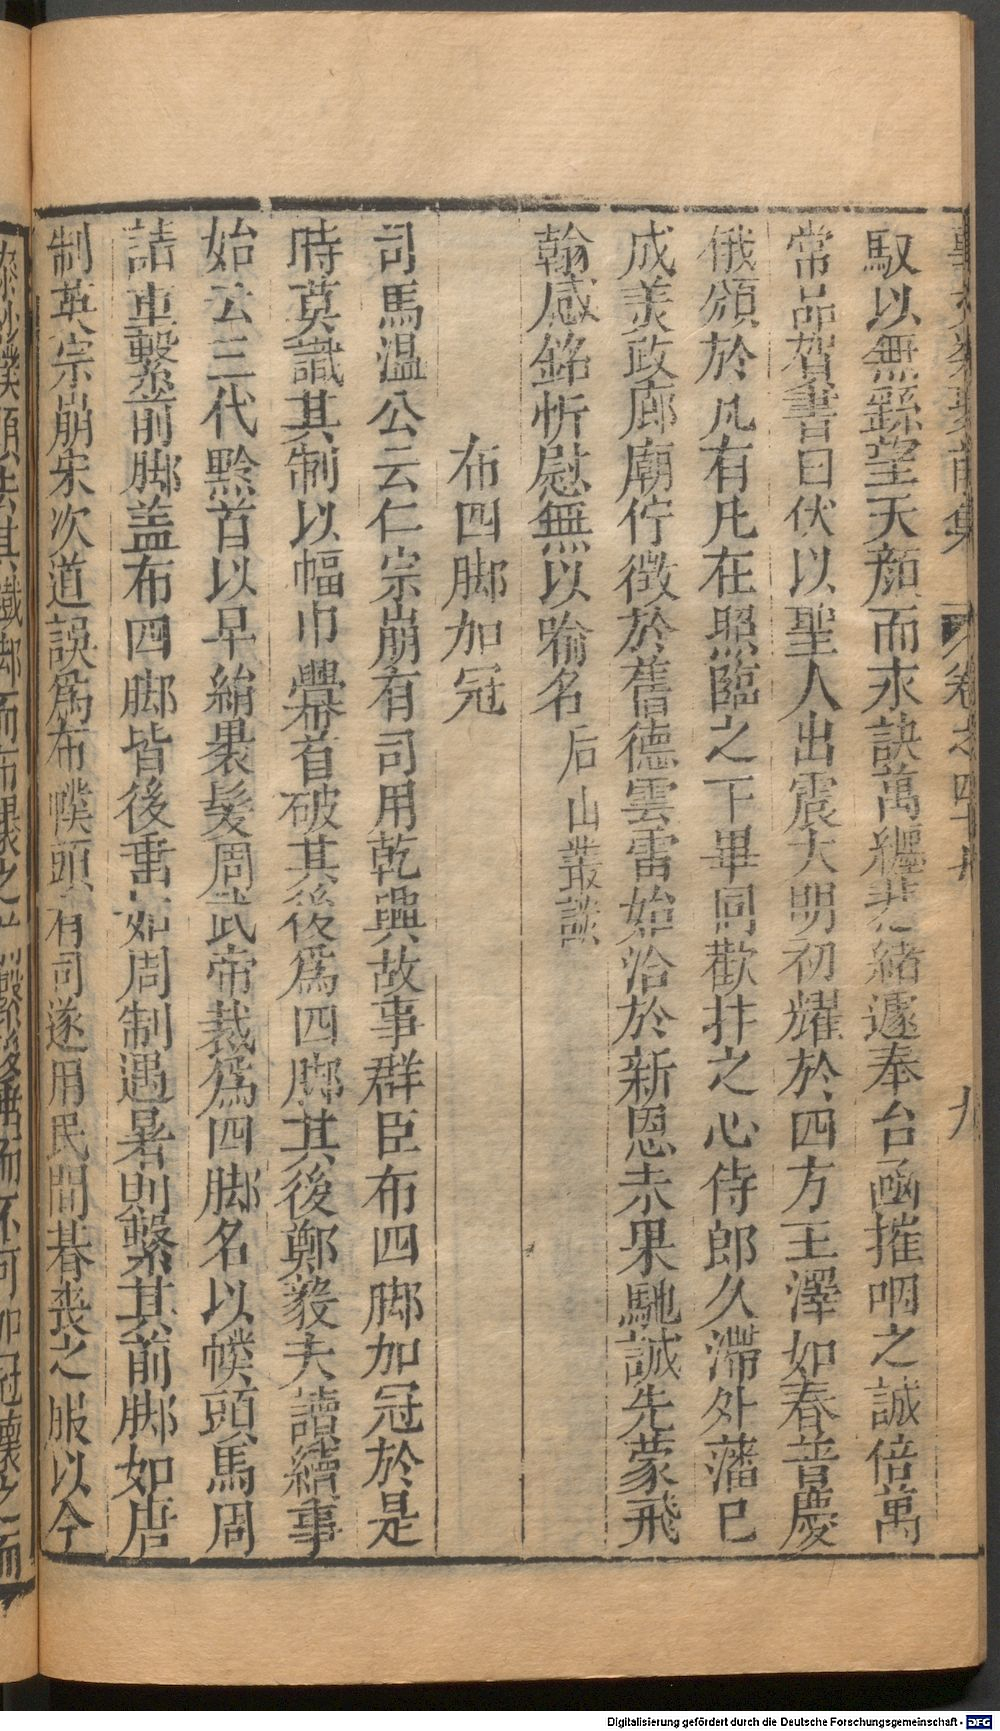 馭以無繇望天顔而永訣萬纏悲緒遽奉台函摧咽之誠倍萬
常品賀書曰伏以聖人出震大明初耀於四方王澤如春普慶
俄頒於凡有凡在照臨之下畢同歡抃之心侍郎久滯外藩已
成美政廊廟佇徴於舊德雲雷始洽於新恩未果馳誠先蒙飛
翰感銘忻慰無以喻名 后山叢談
布四脚加冠
司馬温公云仁宗崩有司用乾興故事群臣布四脚加冠於是
時莫識其制以幅巾羃首破其後爲四脚其後鄭毅夫讀續事
始云三代黔首以皁絹裹髮周武帝裁爲四脚名以幞頭馬周
請重繫前脚盖布四脚皆後垂如周制遇暑則繫其前脚如唐
制英宗崩宋次道誤爲布幞頭有司遂用民間朞喪之服以今
卷之四十
九
Digitalisierung gefördert durch die Deutsche Forschungsgemeinschaft - DFG